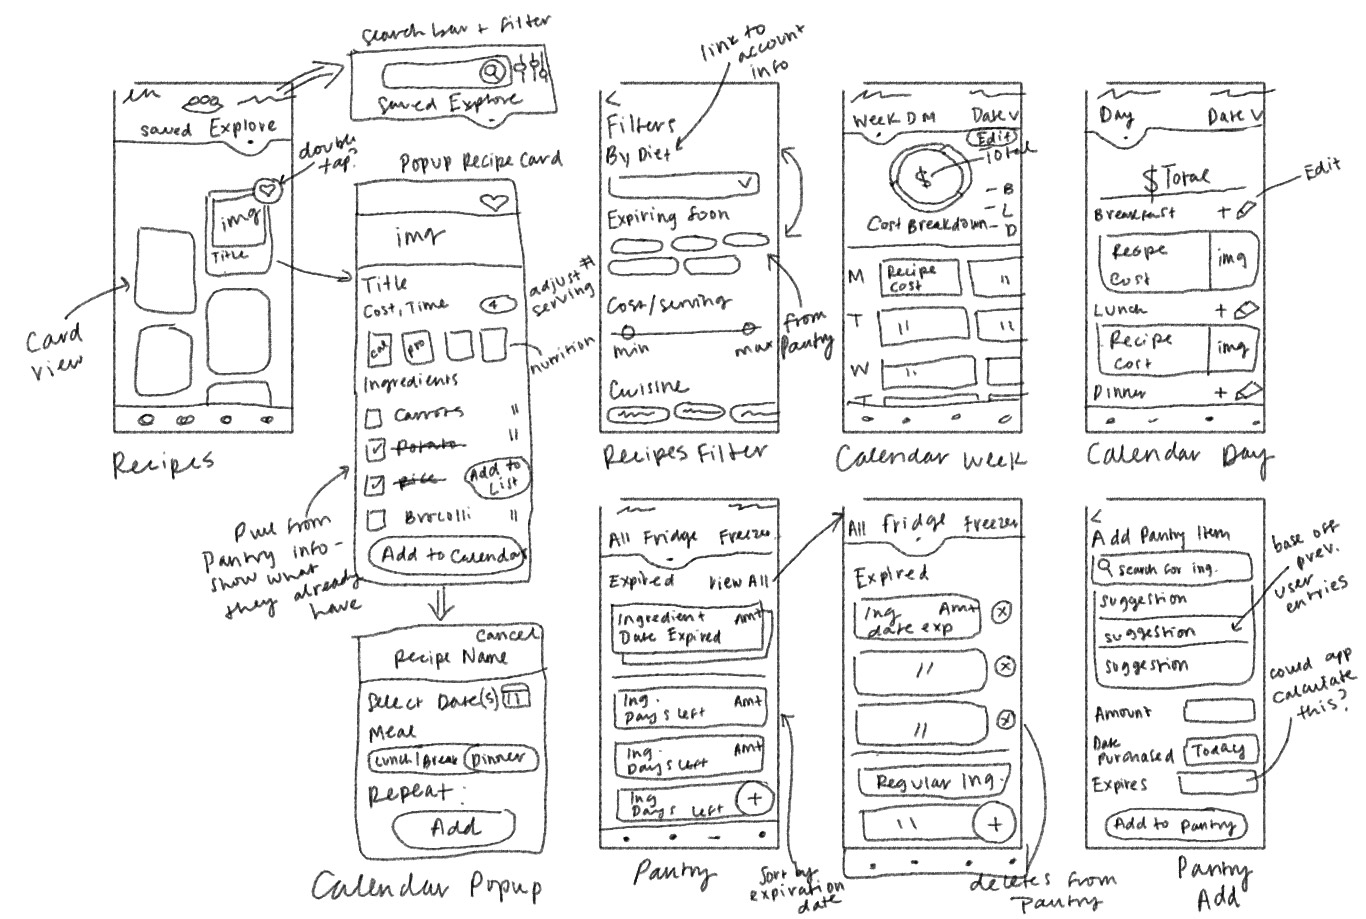 search bar + filter
saved Explore
saved Explore
double
tap?
img
Title
card
view
Recipes
Popup Recipe Card
img
Title
Cost, Time
4
adjust #
serving
cal
pro
nutrition
Ingredients
Carrots "
Potato "
Rice
Add to
List
Brocolli "
Add to Calendar
Pull from
Pantry info -
show what
they already
have
Cancel
Recipe Name
Select Date(s)
Meal
Lunch Break Dinner
Repeat:
Add
Calendar Popup
link to
account
info
<
Filters
By Diet
Expiring Soon
Cost/serving
min max
from
Pantry
Cuisine
Recipes Filter
Week D M Date v
Edit
Total
$
- B
- L
- D
Cost Breakdown
M Recipe
Cost "
T " "
W "
T
Calendar Week
Day Date v
$ Total
Edit
Breakfast +
Recipe
Cost
img
Lunch +
Recipe
Cost
img
Dinner +
Calendar Day
All Fridge Freezer
Expired View All
Ingredient Amt
Date Expired
Ing. Amt
Days Left
Ing. Amt
Days Left
Ing
Days Left
+
Pantry
Sort by
expiration
date
All Fridge Freezer
Expired
Ing Amt
date exp
x
" x
" x
Regular Ing.
" +
deletes from
Pantry
<
Add Pantry Item
search for ing.
suggestion
suggestion
suggestion
base off
prev.
user
entries
could app
calculate
this?
Amount
Date
purchased Today
Expires
Add to pantry
Pantry
Add